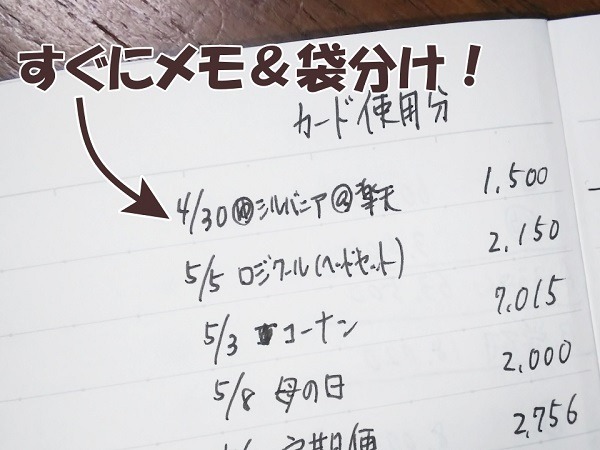 すぐにメモ＆袋分け！
カード使用分
4/30 シルバニア@楽天 1,500
5/5 ロジクール(ヘッドセット) 2,150
5/3 コーナン 7,015
5/8 母の日 2,000
定期便 2,756